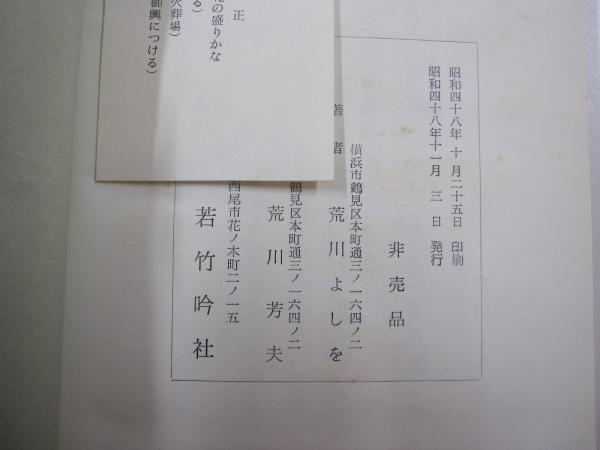 昭和四十八年 十 月二十五日 印刷
昭和四十八年十一月 三 日 発行
非売品
横浜市鶴見区本町通三ノ一六四ノ二
著者 荒川よしを
鶴見区本町通三ノ一六四ノ二
荒川芳夫
西尾市花ノ木町二ノ一五
若竹吟社
正
の盛りかな
る)
火葬場)
御輿につける)